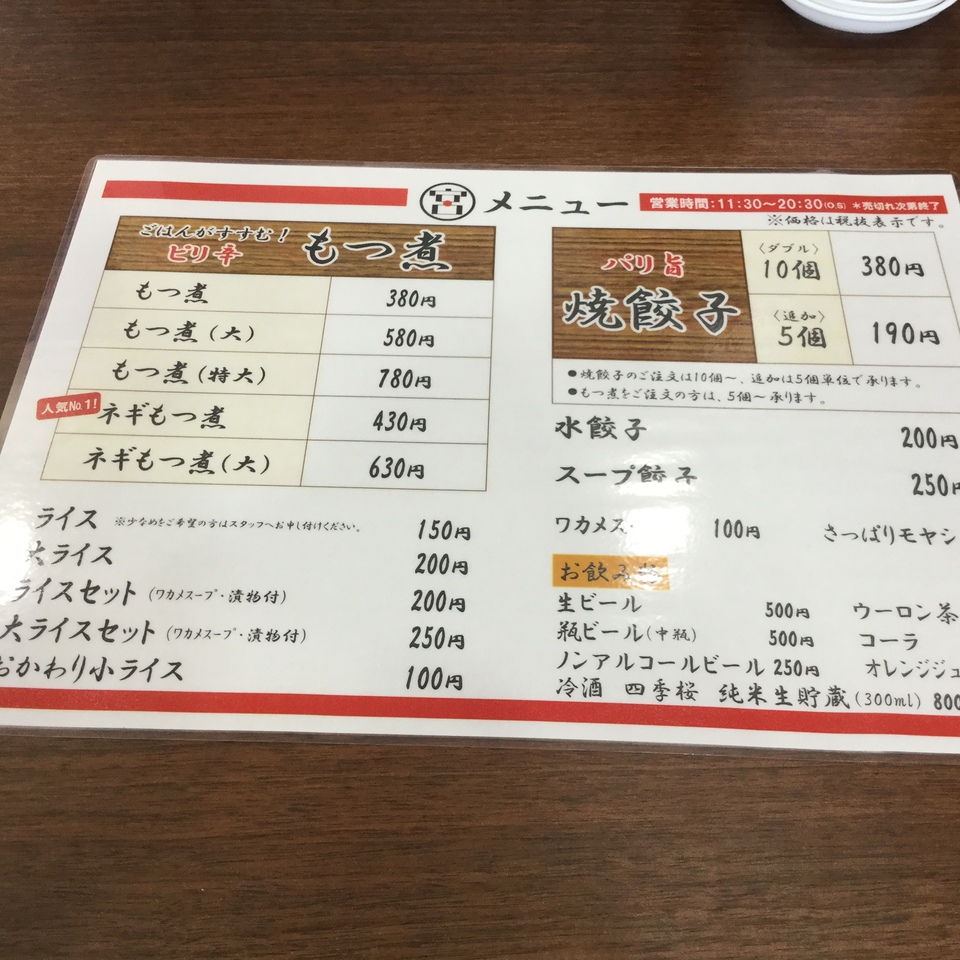 宮 メニュー
営業時間:11:30～20:30(O.S) ＊売切れ次第終了
※価格は税抜表示です。
ごはんがすすむ！
ピリ辛 もつ煮
もつ煮 380円
もつ煮(大) 580円
もつ煮(特大) 780円
人気No.1!
ネギもつ煮 430円
ネギもつ煮(大) 630円
ライス ※少なめをご希望の方はスタッフへお申し付けください。 150円
大ライス 200円
ライスセット (ワカメスープ・漬物付) 200円
大ライスセット (ワカメスープ・漬物付) 250円
おかわり小ライス 100円
パリ旨
焼餃子
〈ダブル〉
10個 380円
〈追加〉
5個 190円
●焼餃子のご注文は10個～、追加は5個単位で承ります。
●もつ煮をご注文の方は、5個～承ります。
水餃子 200円
スープ餃子 250円
ワカメス 100円 さっぱりモヤシ
お飲み物
生ビール 500円 ウーロン茶
瓶ビール(中瓶) 500円 コーラ
ノンアルコールビール 250円 オレンジジュ
冷酒 四季桜 純米生貯蔵(300ml) 800